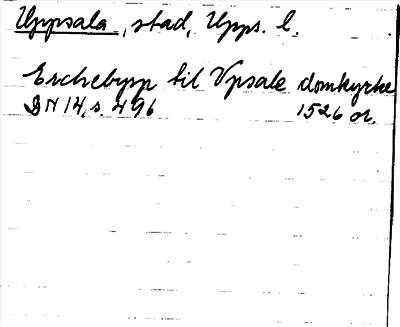 Uppsala, stad, Upps. l.
Erchebypp til Vpsale domkyrke
DN 14, s. 496 1526 or.